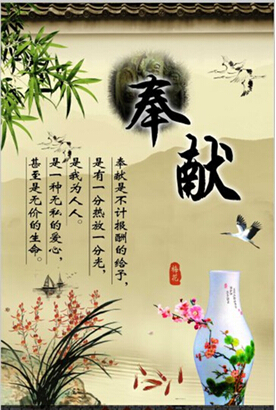 奉献
奉献是不计报酬的给予,
是有一分热放一分光,
是我为人人。
是一种无私的爱心,
甚至是无价的生命。
梅花